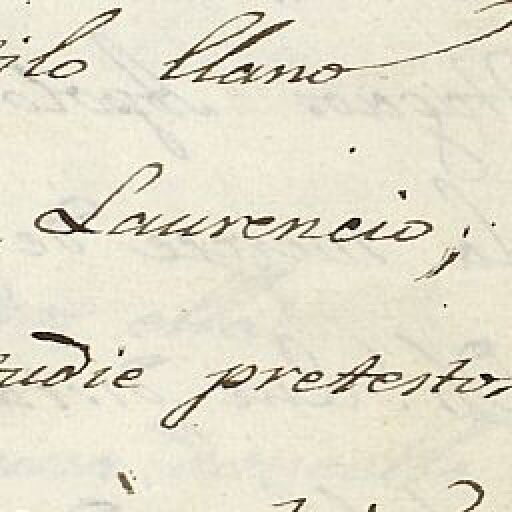 ilo llano
Laurencio;
tudie pretesto